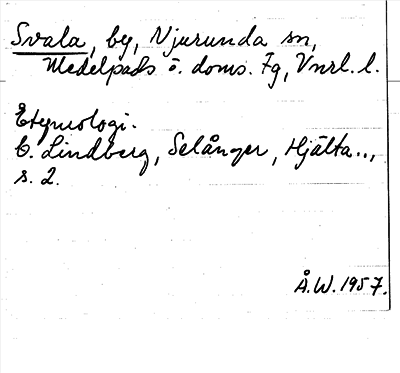 Svala, by, Njurunda sn,
Medelpads ö. doms. Fg, Vnrl. l.
Etymologi.
C. Lindberg, Selånger, Hjälta..,
s. 2.
Å.W. 1957.